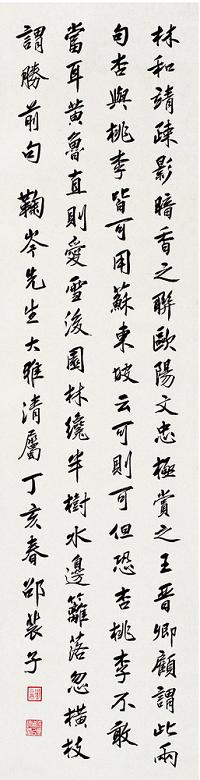 林和靖疎影暗香之聯歐陽文忠極賞之王晉卿顧謂此兩
句杏與桃李皆可用蘇東坡云可則可但恐杏桃李不敢
當耳黃魯直則愛雪後園林纔半樹水邊籬落忽橫枝
謂勝前句 鞠岑先生大雅清屬丁亥春邵裴子